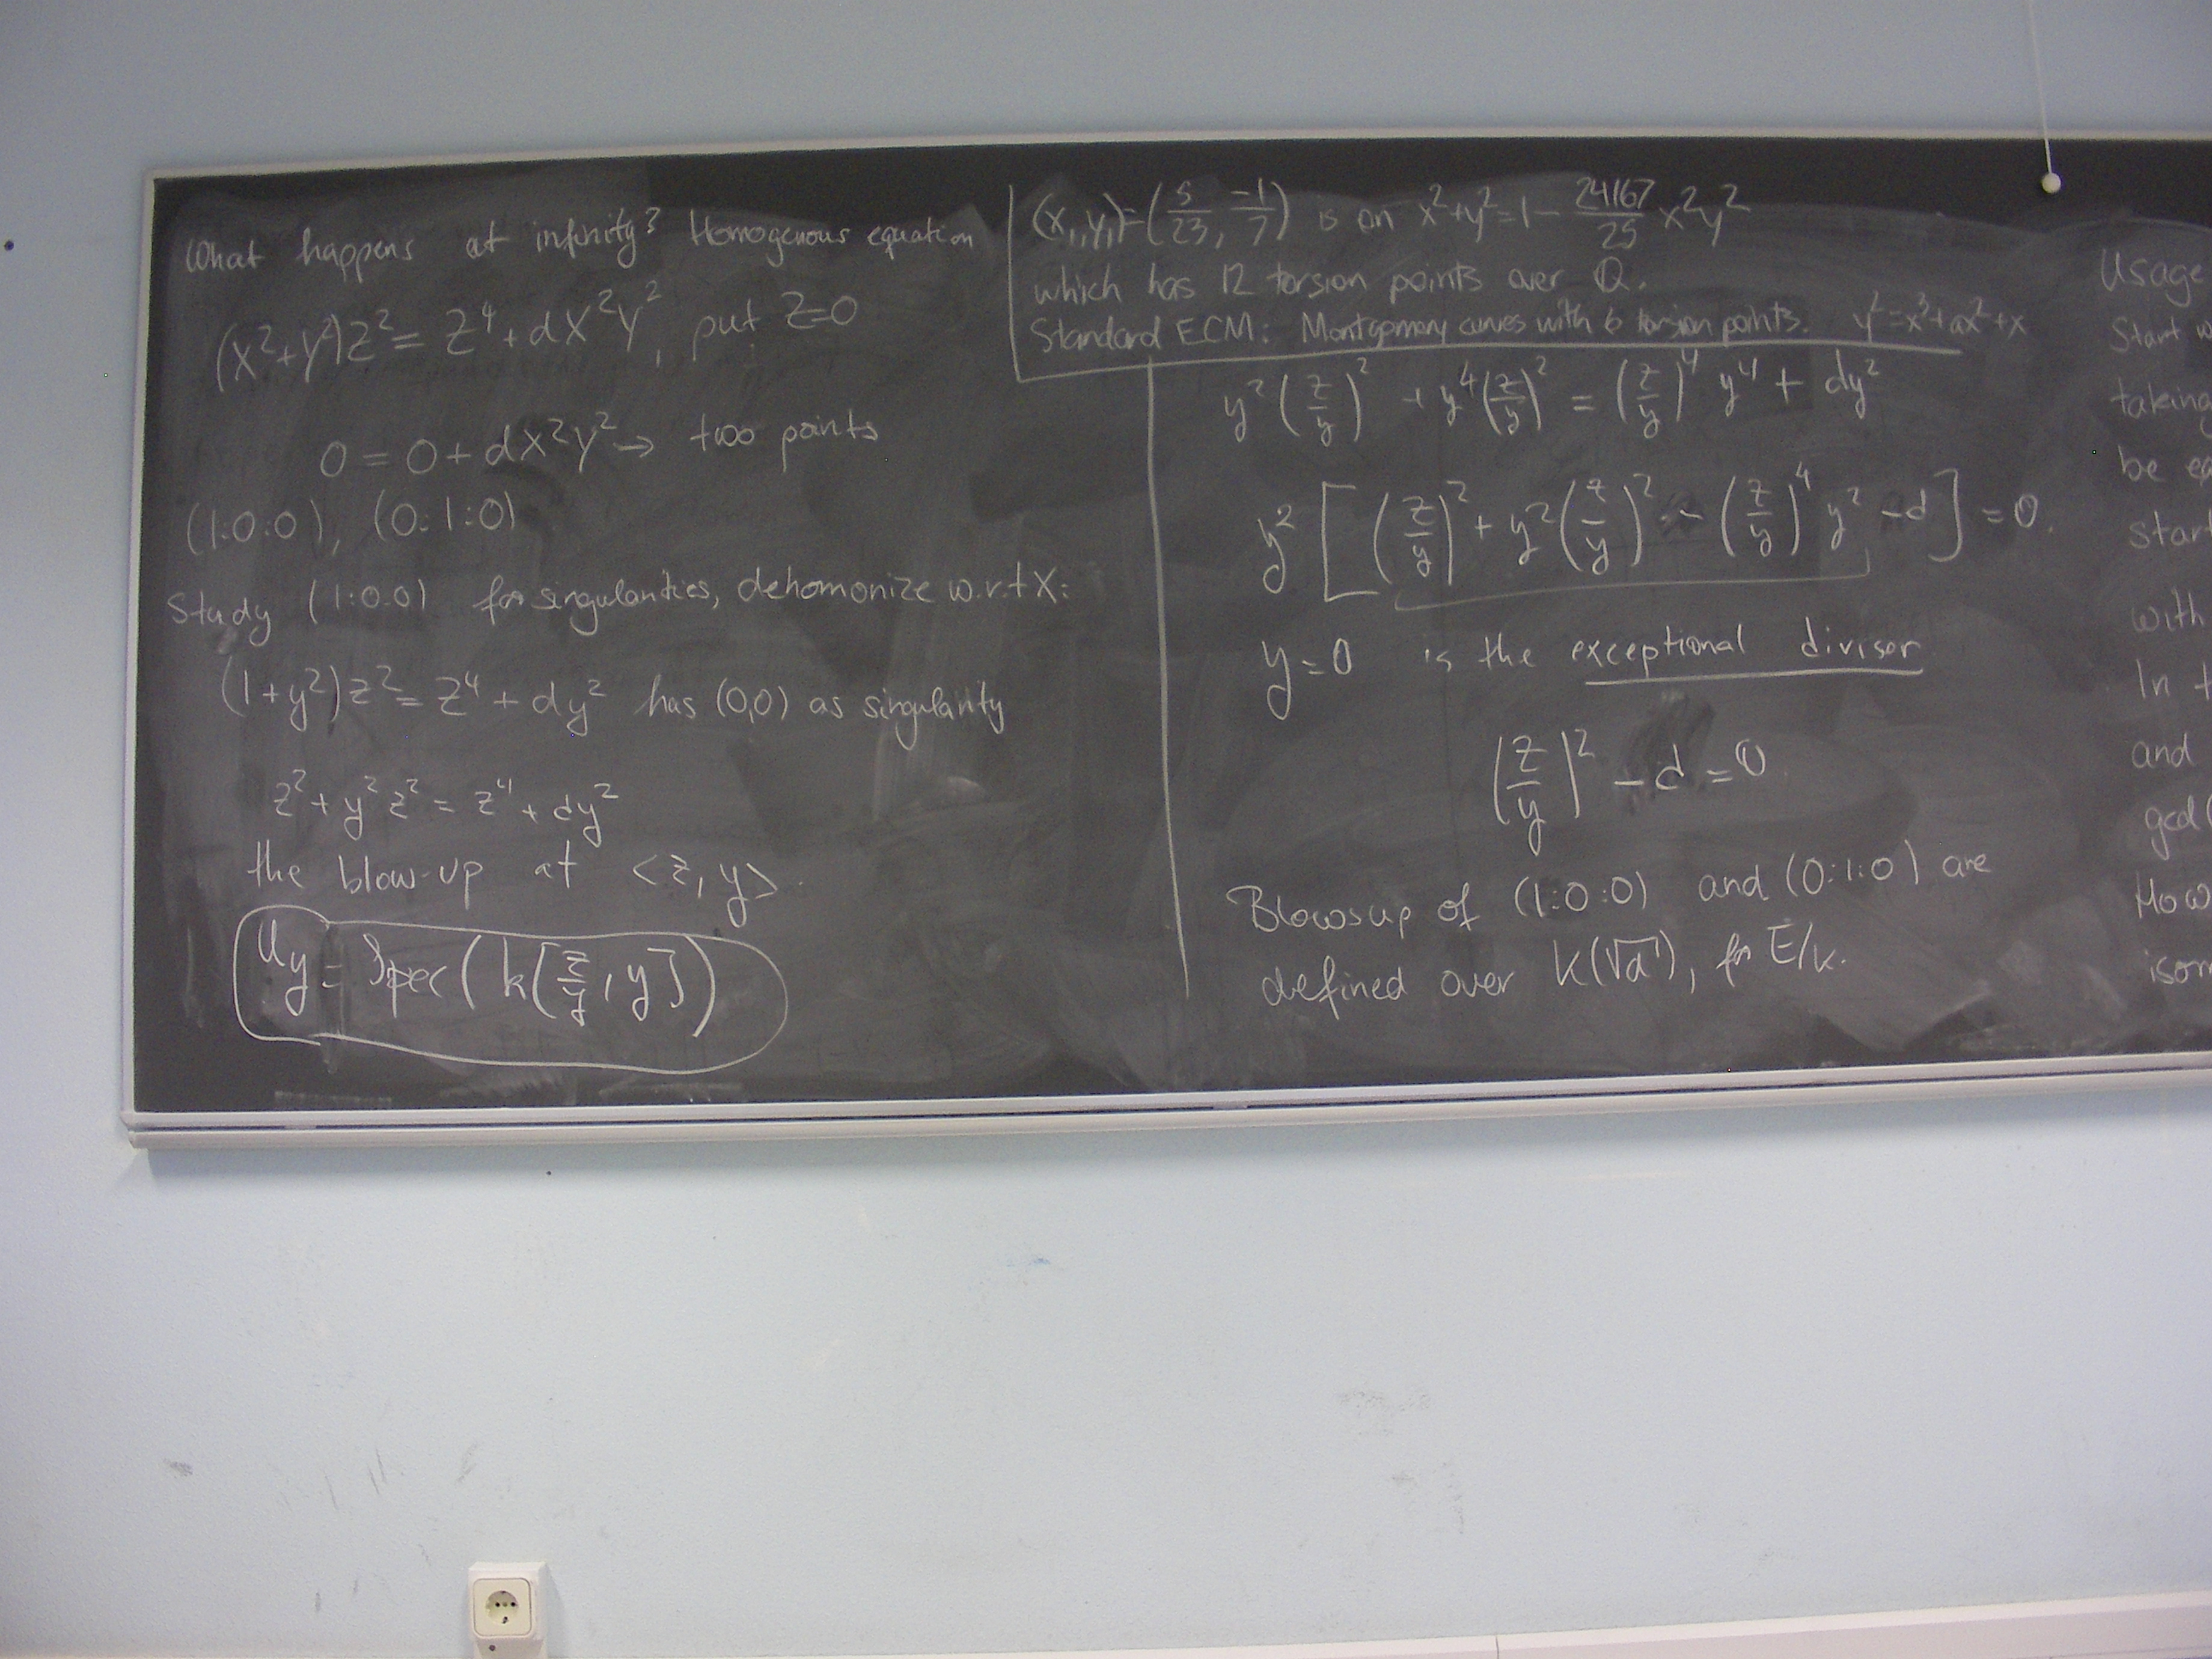 What happens at infinity? Homogenous equation
(X²+Y²)Z² = Z⁴ + dX²Y², put Z=0
0 = 0 + dX²Y² → two points
(1:0:0), (0:1:0)
Study (1:0:0) for singularities, dehomonize w.r.t X:
(1+y²)z² = z⁴ + dy² has (0,0) as singularity
z² + y²z² = z⁴ + dy²
the blow-up at <z, y>.
Uy = Spec(k[z/y, y])
(x₁,y₁)=(5/23, -1/7) is on x²+y²=1- 24167/25 x²y²
which has 12 torsion points over Q.
Standard ECM: Montgomery curves with 6 torsion points. y²=x³+ax²+x
y²(z/y)² + y⁴(z/y)² = (z/y)⁴ y⁴ + dy²
y² [ (z/y)² + y²(z/y)² - (z/y)⁴ y² - d ] = 0.
y=0 is the exceptional divisor
(z/y)² - d = 0
Blowsup of (1:0:0) and (0:1:0) are
defined over k(√d), for E/k.
Usage
Start w
taking
be eq
start
with
In t
and
gcd(
How
isom